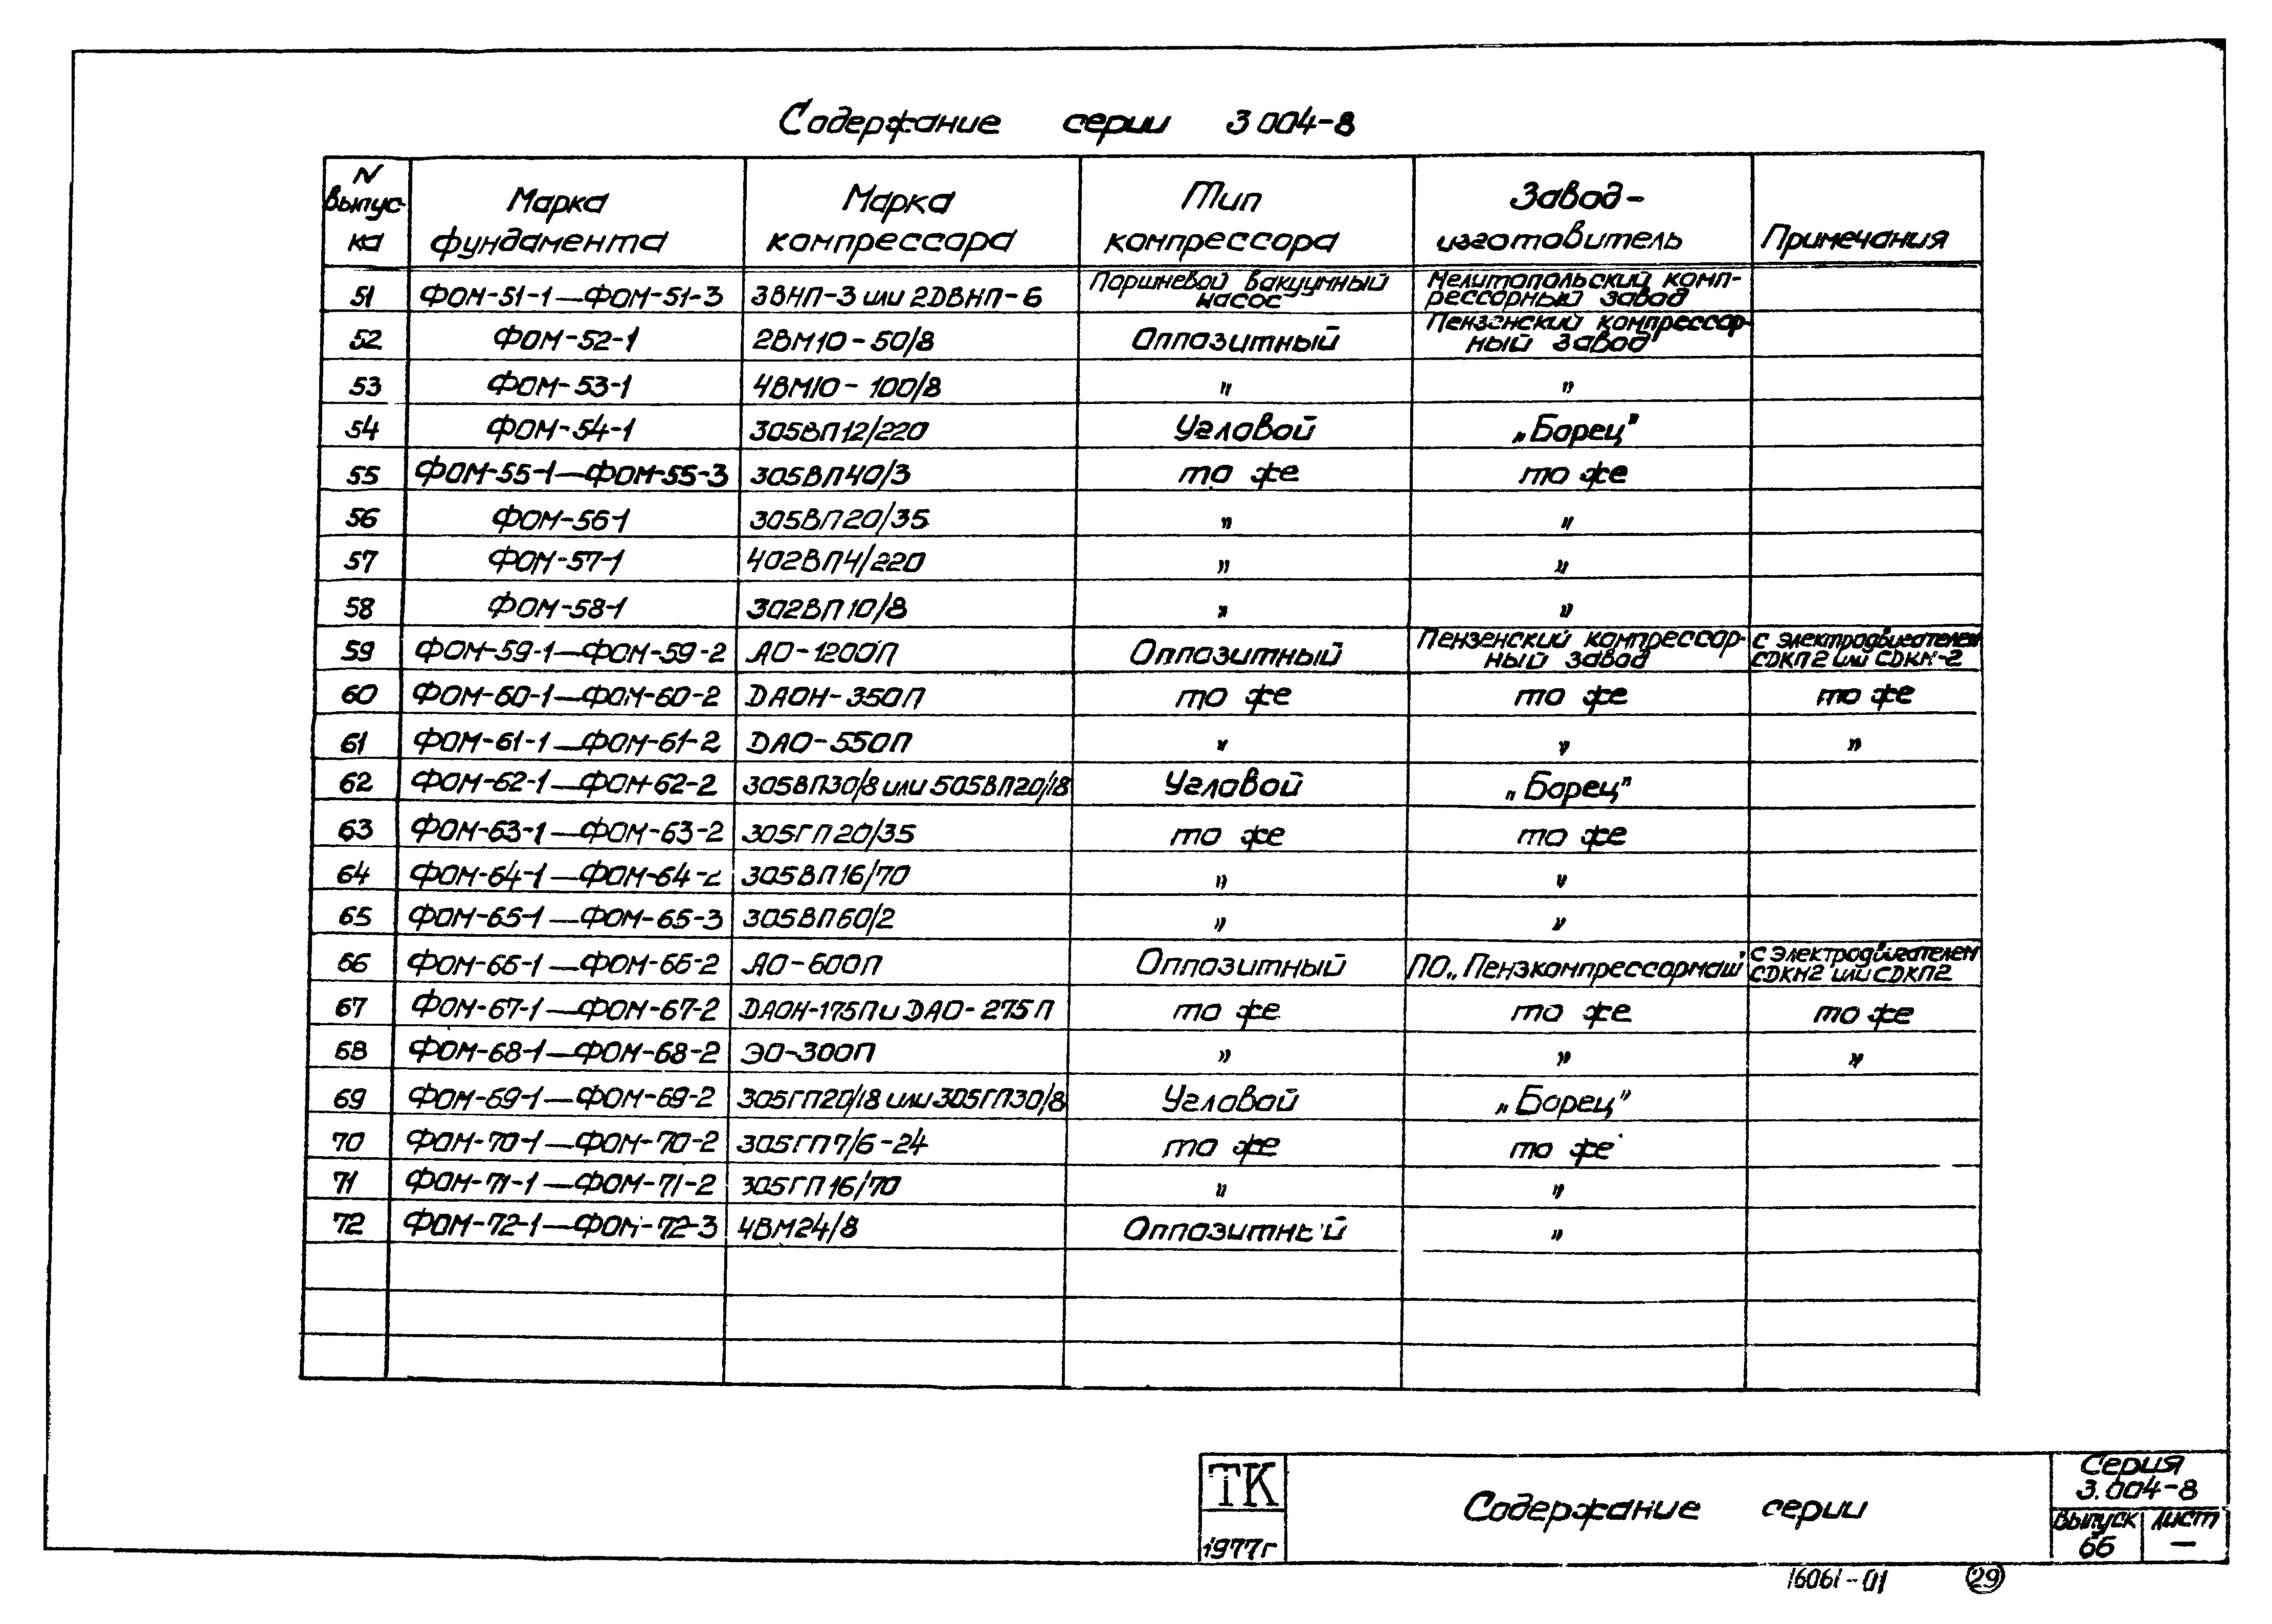 Содержание серии 3 004-8
N выпус- ка | Марка фундамента | Марка компрессора | Тип компрессора | Завод- изготовитель | Примечания
51 | ФОМ-51-1—ФОМ-51-3 | 3ВНП-3 или 2ДВНП-6 | Поршневой вакуумный насос | Мелитопольский комп- рессорный завод
52 | ФОМ-52-1 | 2ВМ10-50/8 | Оппозитный | Пензенский компрессор- ный завод
53 | ФОМ-53-1 | 4ВМ10-100/8 | " | "
54 | ФОМ-54-1 | 305ВП12/220 | Угловой | „Борец"
55 | ФОМ-55-1—ФОМ-55-3 | 305ВП40/3 | то же | то же
56 | ФОМ-56-1 | 305ВП20/35 | " | "
57 | ФОМ-57-1 | 402ВП4/220 | " | "
58 | ФОМ-58-1 | 302ВП10/8 | " | "
59 | ФОМ-59-1—ФОМ-59-2 | АО-1200П | Оппозитный | Пензенский компрессор- ный завод | с электродвигателем СДКП2 или СДКМ-2
60 | ФОМ-60-1—ФОМ-60-2 | ДАОН-350П | то же | то же | то же
61 | ФОМ-61-1—ФОМ-61-2 | ДАО-550П | " | " | "
62 | ФОМ-62-1—ФОМ-62-2 | 305ВП30/8 или 505ВП20/18 | Угловой | „Борец"
63 | ФОМ-63-1—ФОМ-63-2 | 305ГП20/35 | то же | то же
64 | ФОМ-64-1—ФОМ-64-2 | 305ВП16/70 | " | "
65 | ФОМ-65-1—ФОМ-65-3 | 305ВП60/2 | " | "
66 | ФОМ-66-1—ФОМ-66-2 | АО-600П | Оппозитный | ПО „Пензкомпрессормаш" | с электродвигателем СДКМ2 или СДКП2
67 | ФОМ-67-1—ФОМ-67-2 | ДАОН-175П и ДАО-275П | то же | то же | то же
68 | ФОМ-68-1—ФОМ-68-2 | ЭО-300П | " | " | "
69 | ФОМ-69-1—ФОМ-69-2 | 305ГП20/18 или 305ГП30/8 | Угловой | „Борец"
70 | ФОМ-70-1—ФОМ-70-2 | 305ГП7/6-24 | то же | то же
71 | ФОМ-71-1—ФОМ-71-2 | 305ГП16/70 | " | "
72 | ФОМ-72-1—ФОМ-72-3 | 4ВМ24/8 | Оппозитный | "
ТК
1977г
Содержание серии
Серия
3.004-8
Выпуск Лист
66 —
16061-01 29